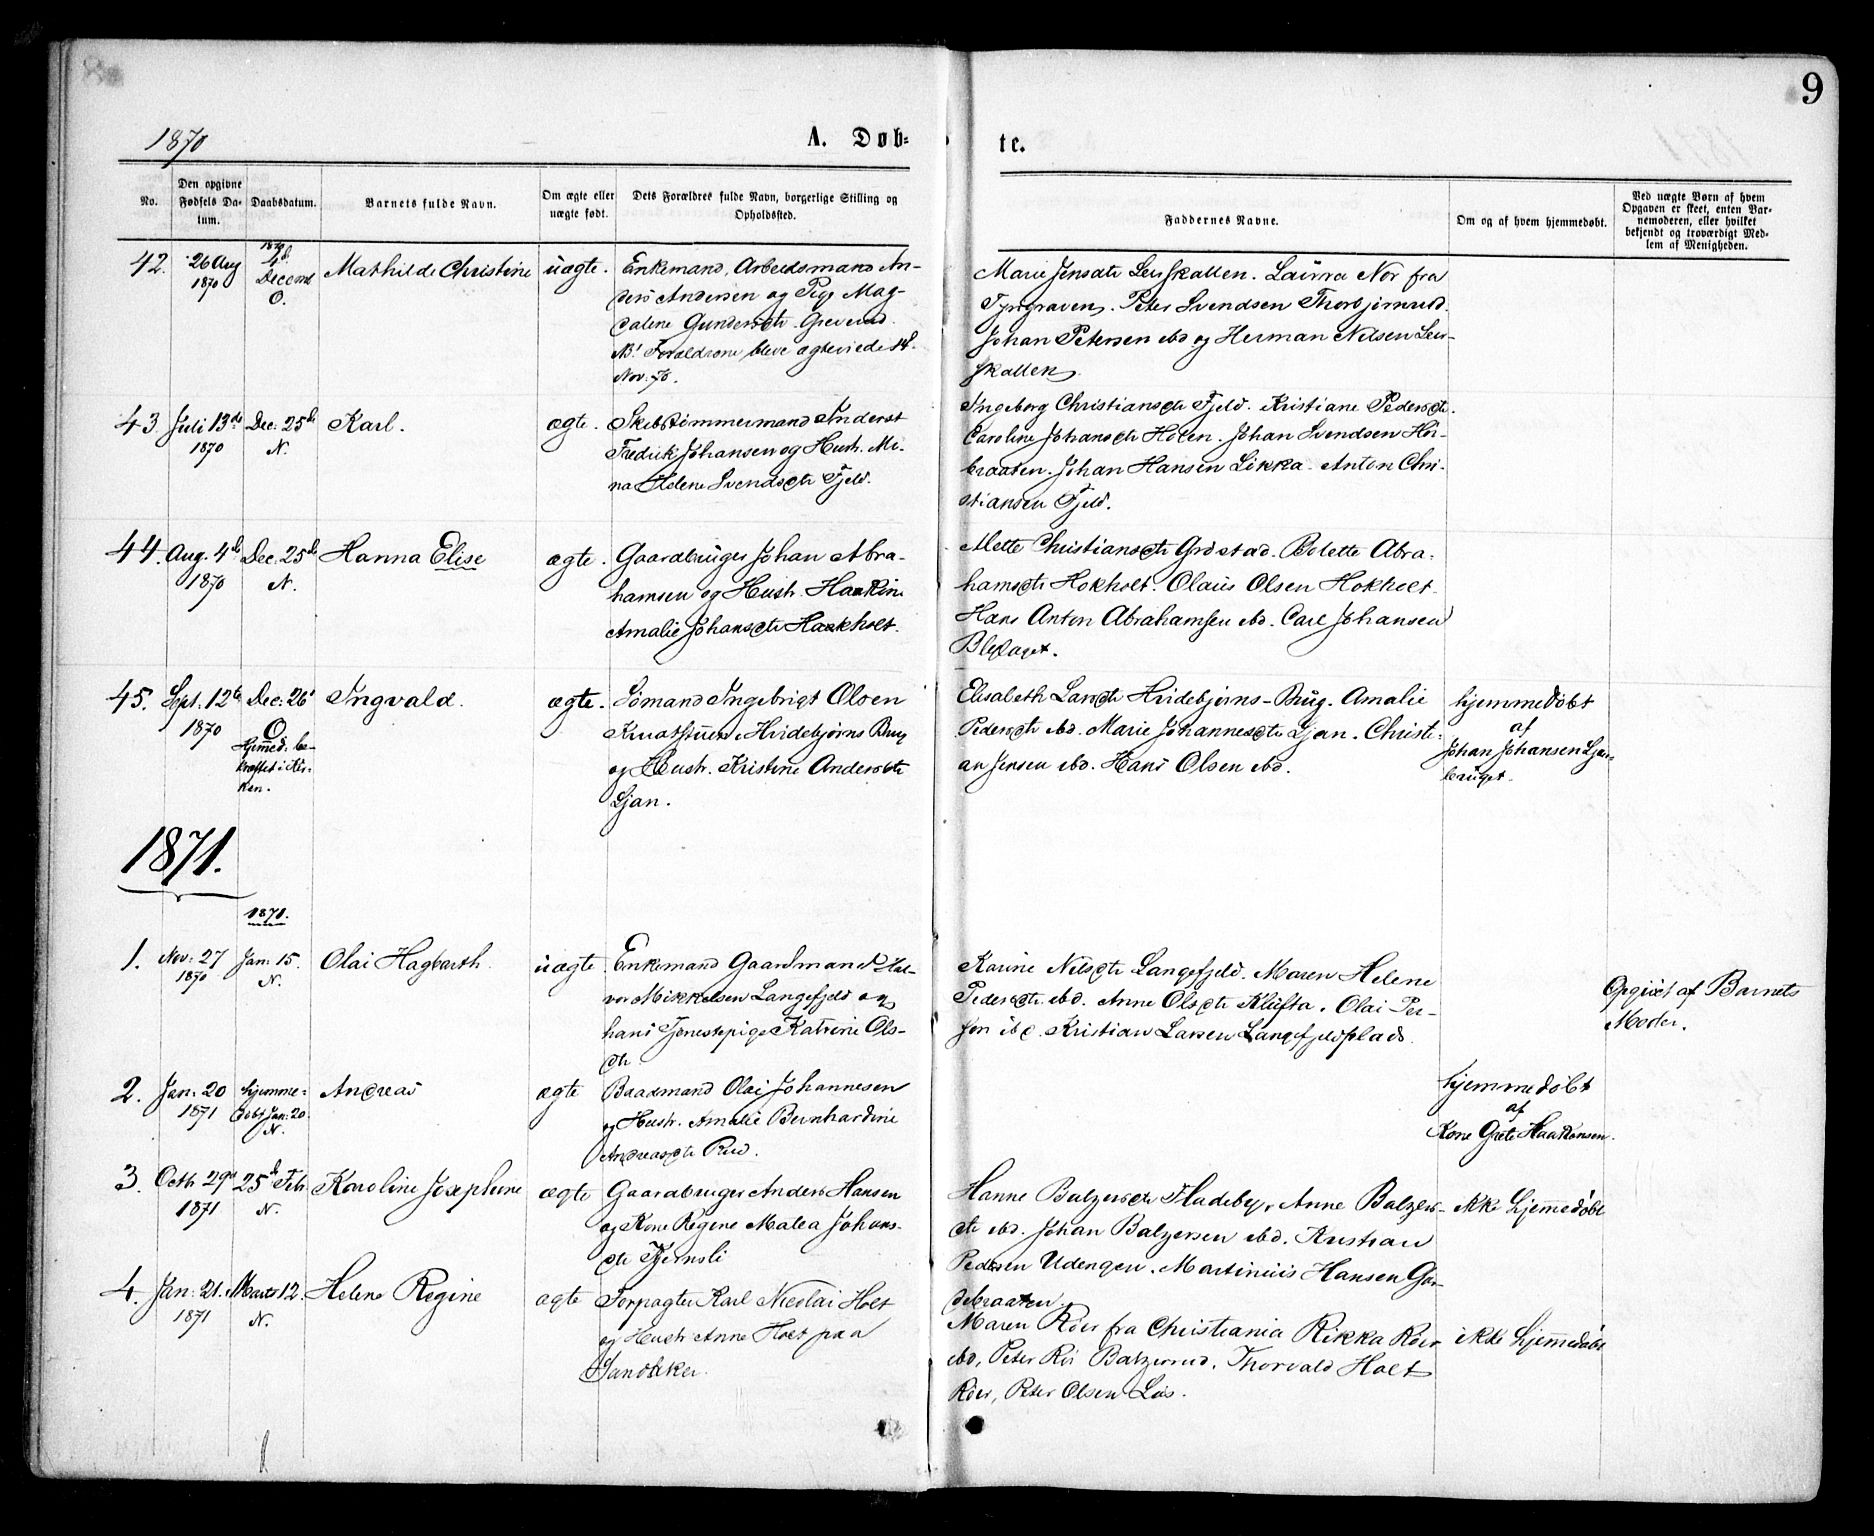 9
1870
A. Døb-
te.
No.
Den opgivne Fødsels Da-tum.
Daabsdatum.
Barnets fulde Navn.
Om ægte eller uægte født.
Dets Forældres fulde Navn, borgerlige Stilling og Opholdssted.
Faddernes Navne.
Om og af hvem hjemmedøbt.
Ved uægte Børn af hvem Opgaven er skeet, enten Bar-nemoderen, eller hvilket bekjendt og troværdigt Med-lem af Menigheden.
42.
26 Aug
1870
1870
4de
Decemb
O.
Mathilde Christine
uægte.
Enkemand, Arbeidsmand An-
ders Andersen og Pige Mag-
dalene Gundersdtr.
NB! Forældrene bleve ægteviede 14de
Nov. 70.
Marie Jensdtr Leirskallen. Laura Nor fra
Tyrigraven. Peter Svendsen Thorbjørnrud.
Johan Petersen ibd og Herman Nilsen Leir-
skallen.
43
Juli 13de
1870
Dec. 25de
N.
Karl.
ægte.
Skibstømmermand Inderst
Fredrik Johansen og Hustr. Mi-
na Helene Svendsdtr Fjeld.
Ingeborg Christiansdtr Fjeld. Kristiane Pedersdtr.
Caroline Johansdtr Holen. Johan Svendsen Hør-
braaten. Johan Hansen Likka. Anton Chri-
stiansen Fjeld.
44.
Aug. 4de
1870
Dec. 25de
N.
Hanna Elise
ægte.
Gaardbruger Johan Abra-
hamsen og Hustr. Haakine
Amalie Johansdtr Haakholt.
Mette Christiansdtr Grøstad. Bolette Abra-
hamsdtr Hokholt. Olaus Olsen Hokholt.
Hans Anton Abrahamsen ibd. Carl Johansen
Bleslaget.
45.
Sept. 12te
1870
Dec. 26
O
Hjmmed. be-
kræftet i Kir-
ken.
Ingvald.
ægte.
Sømand Ingebrigt Olsen
Knatstuen Hvidebjørns Brug
og Hustr. Kristine Andersdtr
Ljan.
Elisabeth Larsdtr Hvidebjørns-Brug. Amalie
Pedersdtr ibd. Marie Johannesdtr Ljan. Christi-
an Jensen ibd. Hans Olsen ibd.
hjemmedøbt
af
Johan Johansen Ljan-
bruget.
1871.
1871.
1.
Nov. 27
1870
Jan. 15.
N.
Olai Hagbarth.
uægte.
Enkemand Gaardmand Hal-
vor Mikkelsen Langefjeld og
hans Tjenestepige Katrine Ols-
dtr.
Karine Nilsdtr Langefjeld. Maren Helene
Pedersdtr ibd. Anne Olsdtr Kløfta. Olai Per-
son ibd. Kristian Larsen Langefjeldplads.
Opgivet af Barnets
Moder.
2.
Jan. 20
1871
hjemme-
døbt Jan. 20.
N.
Andreas
ægte
Baadmand Olai Johannesen
og Hustr. Amalie Bernhardine
Andreasdtr Rud.
hjemmedøbt
af
Kone Grete Haakonsen.
3.
Octbr 29de
1871
25de Febr
N.
Karoline Josephine
ægte
Gaardbruger Anders Hansen
og Kone Regine Malea Johans-
dtr Tjernsli
Hanne Balzersdtr Fladeby, Anne Balzers-
dtr ibd. Johan Balzersen ibd. Kristian
Pedersen Udengen. Martinius Hansen Gar-
debraaten.
ikke hjemmedøbt
4.
Jan. 21.
1871
Marts 12.
N.
Helene Regine
ægte
Forpagter Karl Nicolai Holt
og Hustr Anne Holt paa
Sandaker.
Maren Röer fra Christiania Rikka Röer
ibd, Peter Rör Balzerrud. Thorvald Holt
Röer, Peter Olsen Løs.
ikke hjemmedøbt